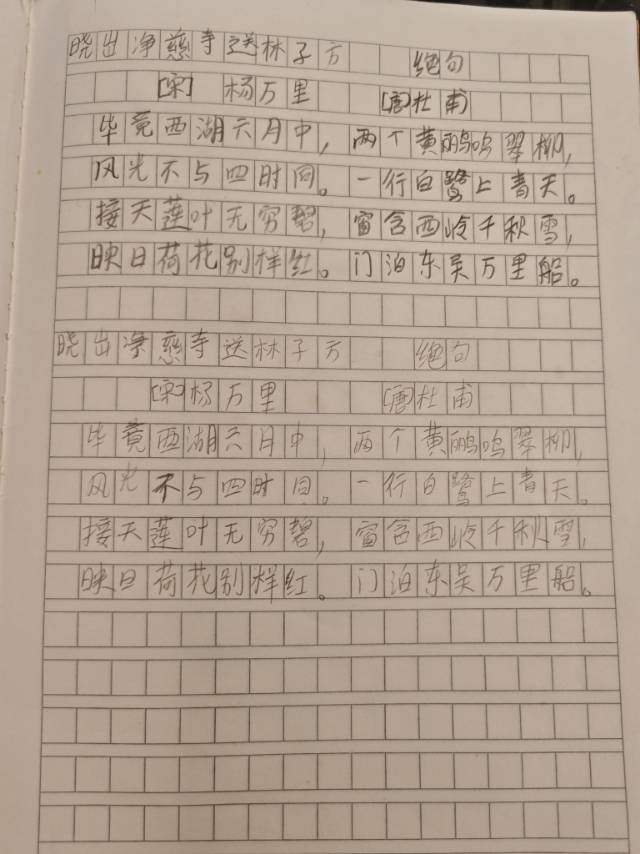 晓出净慈寺送林子方 绝句
[宋] 杨万里 [唐]杜甫
毕竟西湖六月中，两个黄鹂鸣翠柳，
风光不与四时同。一行白鹭上青天。
接天莲叶无穷碧，窗含西岭千秋雪，
映日荷花别样红。门泊东吴万里船。
晓出净慈寺送林子方 绝句
[宋]杨万里 [唐]杜甫
毕竟西湖六月中，两个黄鹂鸣翠柳，
风光不与四时同。一行白鹭上青天。
接天莲叶无穷碧，窗含西岭千秋雪，
映日荷花别样红。门泊东吴万里船。